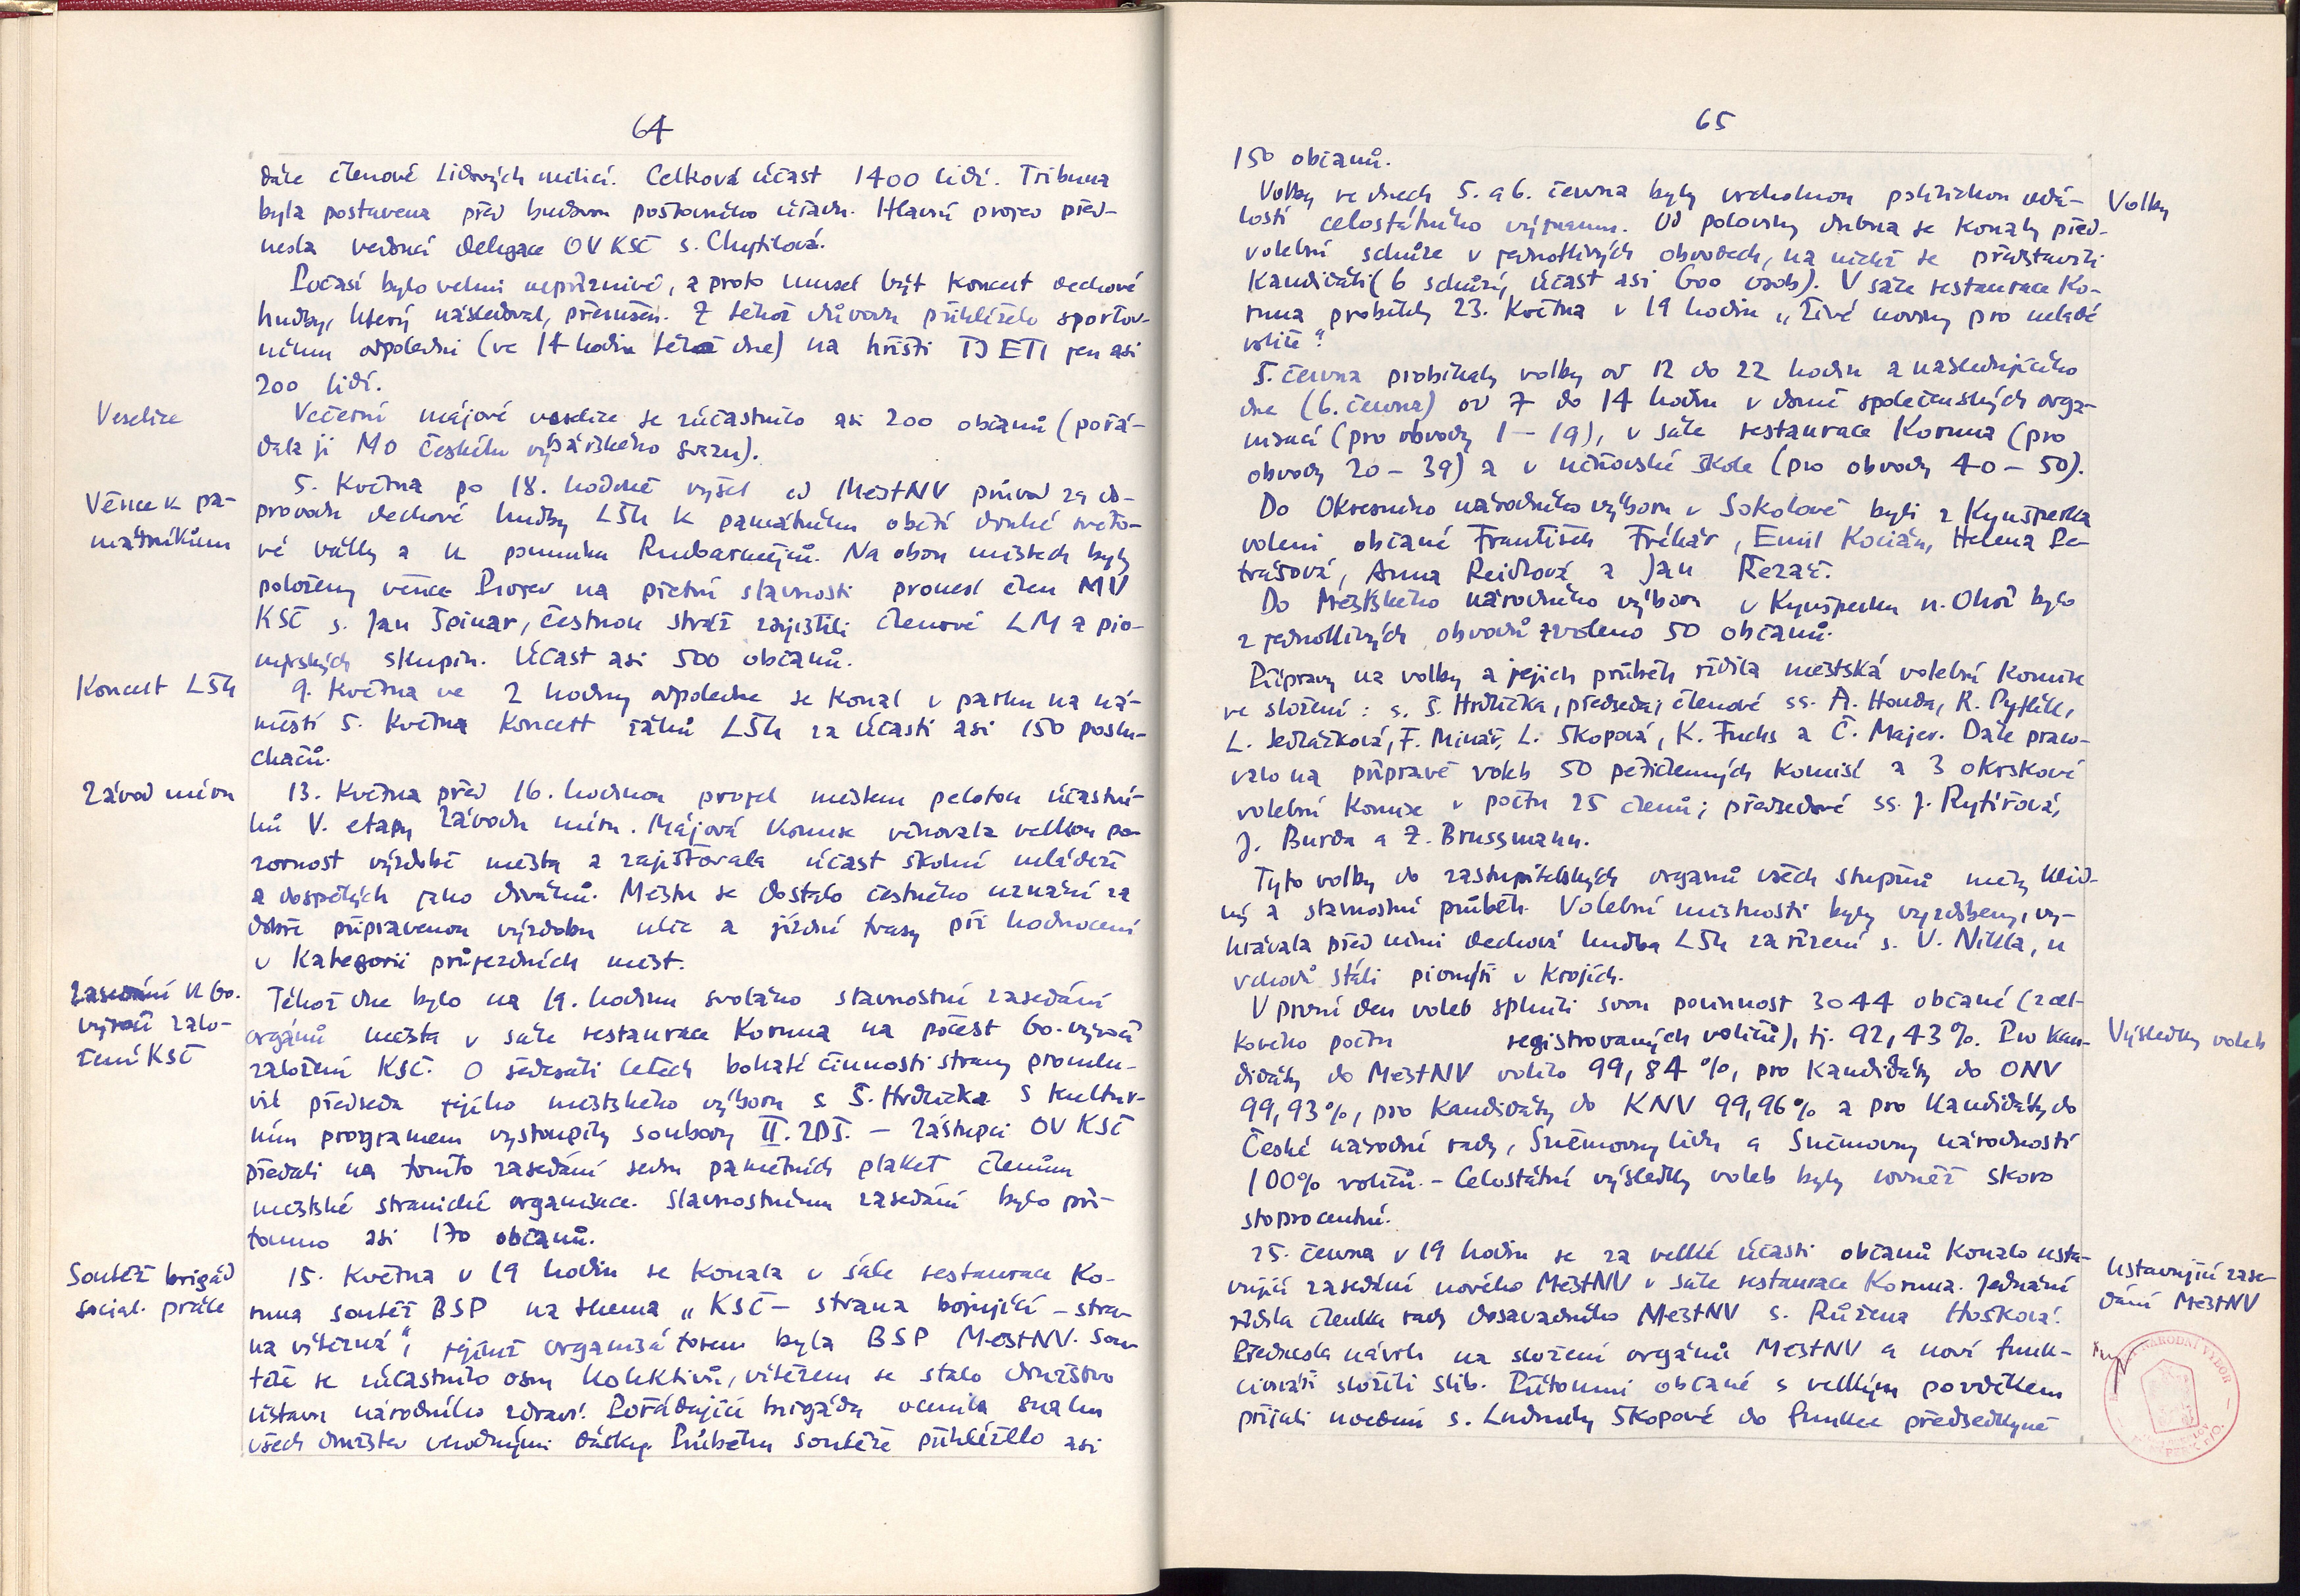 64
dále členové Lidových milicí. Celková účast 1400 lidí. Tribuna
byla postavena před budovou poštovního úřadu. Hlavní projev před-
nesla vedoucí delegace OV KSČ s. Chytilová.
Počasí bylo velmi nepříznivé, a proto musel být koncert dechové
hudby, který následoval, přerušen. Z téhož důvodu přihlíželo sportov-
nímu odpoledni (ve 14 hodin téhož dne) na hřišti TJ ETI jen asi
200 lidí.
Veselice
Večerní májové veselice se zúčastnilo asi 200 občanů (pořá-
dala ji MO Českého rybářského svazu).
Věnce k pa-
mátníkům
5. května po 18. hodině vyšel od MěstNV průvod za do-
provodu dechové hudby LŠU k památníku obětí druhé světo-
vé války a k pomníku Rudoarmějců. Na obou místech byly
položeny věnce. Projev na pietní slavnosti pronesl člen MV
KSČ s. Jan Špinar, čestnou stráž zajistili členové LM a pio-
nýrských skupin. Účast asi 500 občanů.
Koncert LŠU
9. května ve 2 hodiny odpoledne se konal v parku na ná-
městí 5. května koncert žáků LŠU za účasti asi 150 poslu-
chačů.
Závod míru
13. května před 16. hodinou projel městem peloton účastní-
ků V. etapy Závodu míru. Májová komise věnovala velkou po-
zornost výzdobě města a zajišťovala účast školní mládeže
a dospělých jako diváků. Městu se dostalo čestného uznání za
dobře připravenou výzdobu ulic a jízdní trasy při hodnocení
v kategorii průjezdních měst.
Zasedání k 60.
výročí zalo-
žení KSČ
Téhož dne bylo na 19. hodinu svoláno slavnostní zasedání
orgánů města v sále restaurace Koruna na počest 60. výročí
založení KSČ. O šedesáti letech bohaté činnosti strany promlu-
vil předseda jejího městského výboru s. Š. Hrdlička. S kultur-
ním programem vystoupily soubory II. ZDŠ. – Zástupci OV KSČ
předali na tomto zasedání sedm pamětních plaket členům
městské stranické organizace. Slavnostnímu zasedání bylo pří-
tomno asi 170 občanů.
Soutěž brigád
social. práce
15. května v 19 hodin se konala v sále restaurace Ko-
runa soutěž BSP na thema „KSČ – strana bojující – stra-
na vítězná“, jejímž organizátorem byla BSP MěstNV. Sou-
těže se zúčastnilo osm kolektivů, vítězem se stalo družstvo
ústavu národního zdraví. Pořádající brigáda ocenila snahu
všech družstev vhodnými dárky. Průběhu soutěže přihlíželo asi
65
150 občanů.
Volby
Volby ve dnech 5. a 6. června byly vrcholnou politickou udá-
lostí celostátního významu. Od poloviny dubna se konaly před-
volební schůze v jednotlivých obvodech, na nichž se představili
kandidáti (6 schůzí, účast asi 600 osob). V sále restaurace Ko-
runa proběhly 23. května v 19 hodin „Živé noviny pro mladé
voliče“.
5. června probíhaly volby od 12 do 22 hodin a následujícího
dne (6. června) od 7 do 14 hodin v domě společenských orga-
nizací (pro obvody 1 – 19), v sále restaurace Koruna (pro
obvody 20 – 39) a v učňovské škole (pro obvody 40 – 50).
Do Okresního národního výboru v Sokolově byli z Kynšperka
voleni občané František Frékár, Emil Kocián, Helena Pe-
trášová, Anna Reidlová a Jan Řezáč.
Do Městského národního výboru v Kynšperku n. Ohří bylo
z jednotlivých obvodů zvoleno 50 občanů.
Přípravy na volby a jejich průběh řídila městská volební komise
ve složení: s. Š. Hrdlička, předseda; členové ss. A. Honda, R. Pytlík,
L. Sedláčková, F. Minář, L. Škopová, K. Fuchs a Č. Majer. Dále praco-
valo na přípravě voleb 50 pětičlenných komisí a 3 okrskové
volební komise v počtu 25 členů; předsedové ss. J. Rytířová,
J. Burda a Z. Brussmann.
Tyto volby do zastupitelských orgánů všech stupňů měly klid-
ný a slavnostní průběh. Volební místnosti byly vyzdobeny, vy-
hrávala před nimi dechová hudba LŠU za řízení s. V. Nikla, u
vchodů stáli pionýři v krojích.
Výsledky voleb
V první den voleb splnili svou povinnost 3044 občané (z cel-
kového počtu registrovaných voličů), tj. 92,43 %. Pro kan-
didáty do MěstNV volilo 99,84 %, pro kandidáty do ONV
99,93 %, pro kandidáty do KNV 99,96 % a pro kandidáty do
České národní rady, Sněmovny lidu a Sněmovny národností
100 % voličů. – Celostátní výsledky voleb byly rovněž skoro
stoprocentní.
Ustavující zase-
dání MěstNV
25. června v 19 hodin se za velké účasti občanů konalo usta-
vující zasedání nového MěstNV v sále restaurace Koruna. Jednání
řídila členka rady dosavadního MěstNV s. Růžena Hošková.
Přednesla návrh na složení orgánů MěstNV a noví funk-
cionáři složili slib. Přítomní občané s velkým povděkem
přijali uvedení s. Ludmily Škopové do funkce předsedkyně